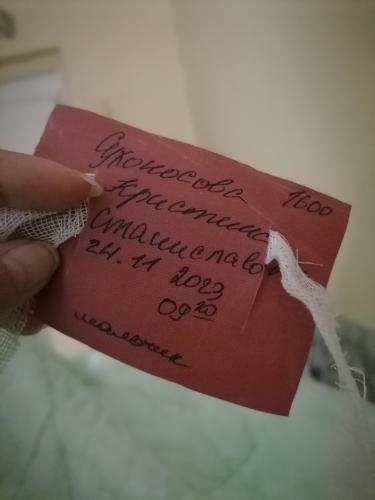 Сухоносова 1600
Кристина
Станиславо
24.11 2023
09 20
мальчик